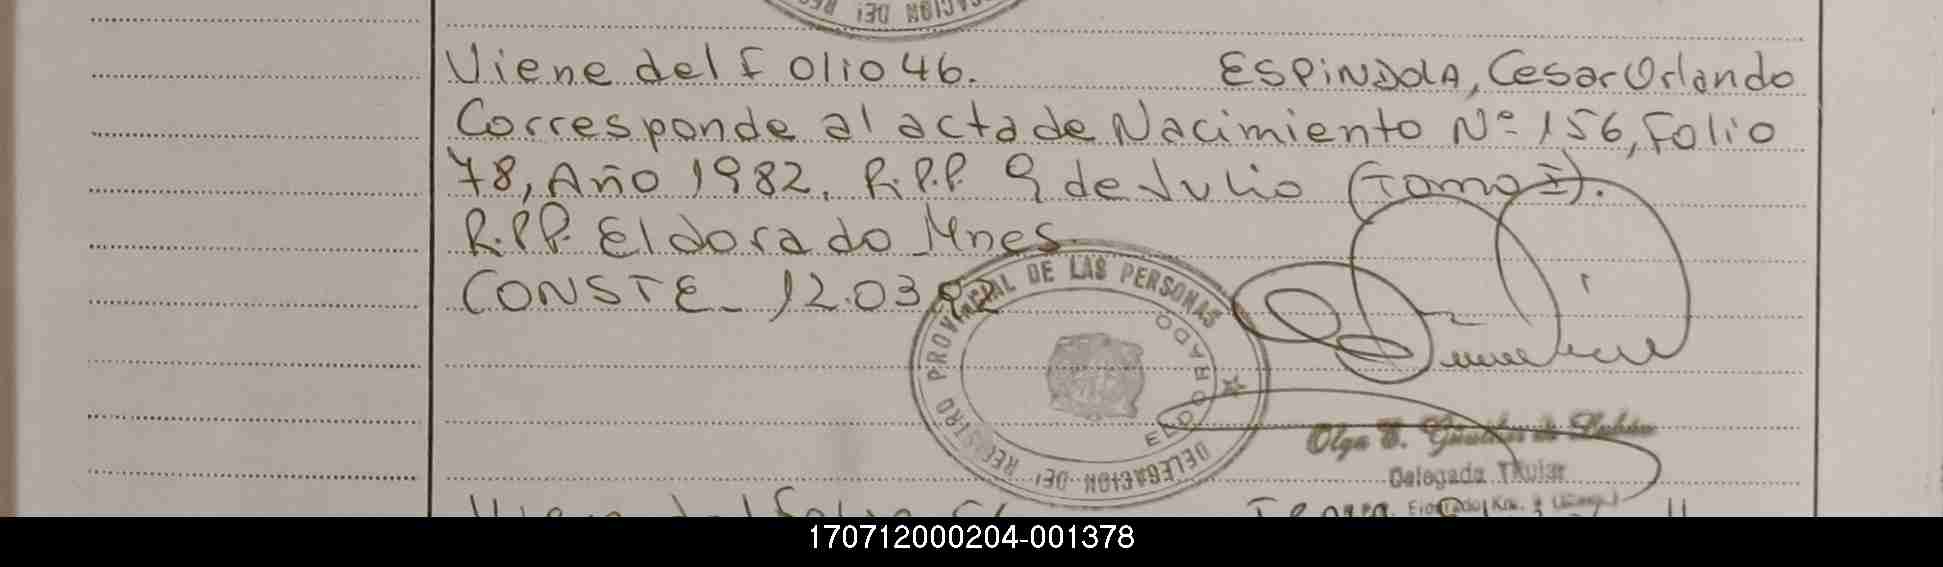 Viene del Folio 46. ESPINDOLA, Cesar Orlando
Corresponde al acta de Nacimiento Nº 156, Folio
78, Año 1982. R.P.P. 9 de Julio (Tomo I).
R.P.P. Eldorado Mnes.
CONSTE_ 12.03.82
REGISTRO PROVINCIAL DE LAS PERSONAS
ELDORADO
DELEGACION DEL
Olga E.
Delegada Titular
Viene del Folio
170712000204-001378